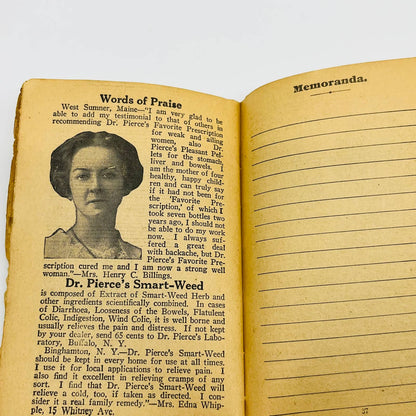 Words of Praise
West Sumner, Maine—"I am very glad to be
able to add my testimonial to that of others in
recommending Dr. Pierce's Favorite Prescription
for weak and ailing
women, also Dr.
Pierce's Pleasant Pel-
lets for the stomach,
liver and bowels. I
am the mother of four
healthy, happy chil-
dren and can truly say
if it had not been for
the 'Favorite Pre-
scription,' of which I
took seven bottles two
years ago, I should not
be able to do my work
now. I always suf-
fered a great deal
with backache, but Dr.
Pierce's Favorite Pre-
scription cured me and I am now a strong well
woman."—Mrs. Henry C. Billings.
Dr. Pierce's Smart-Weed
is composed of Extract of Smart-Weed Herb and
other ingredients scientifically combined. In cases
of Diarrhoea, Looseness of the Bowels, Flatulent
Colic, Indigestion, Wind Colic, it is well borne and
usually relieves the pain and distress. If not kept
by your dealer, send 65 cents to Dr. Pierce's Labo-
ratory, Buffalo, N. Y.
Binghamton, N. Y.—Dr. Pierce's Smart-Weed
should be kept in every home for use at all times.
I use it for local applications to relieve pain. I
also find it excellent in relieving cramps of any
sort. I find that Dr. Pierce's Smart-Weed will
relieve a cold, too, if taken as directed. I con-
sider it a real family remedy."—Mrs. Edna Whip-
ple, 15 Whitney Ave.
Memoranda.
37